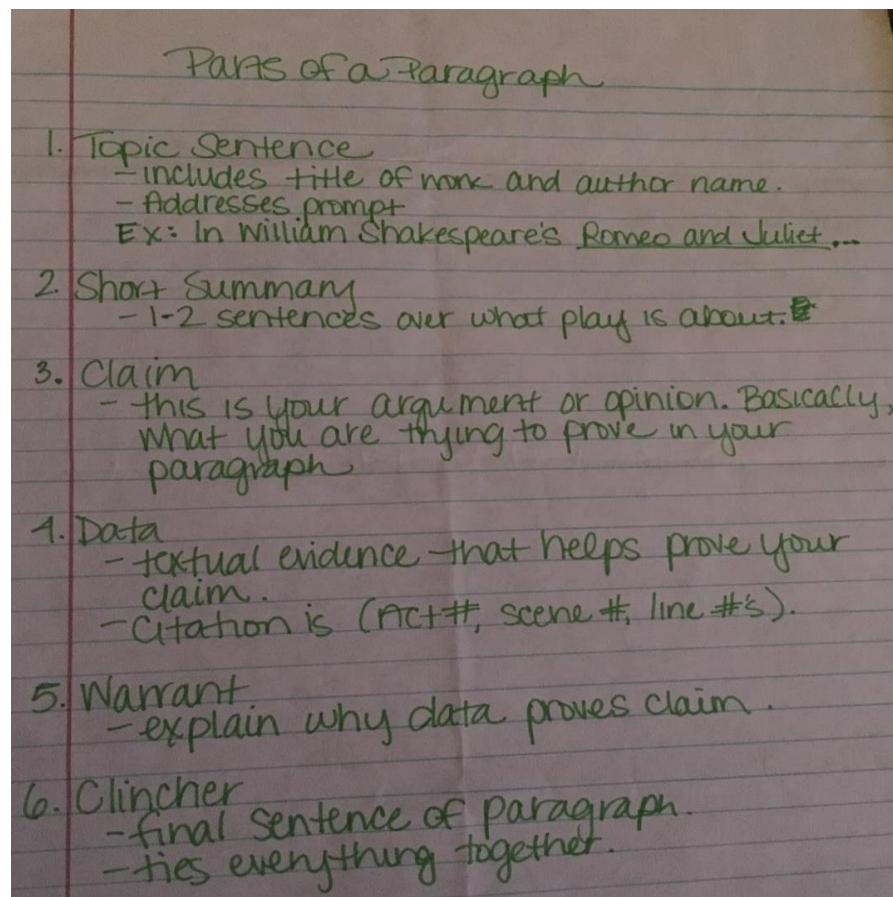 Parts of a Paragraph
1. Topic Sentence
- includes title of work and author name.
- Addresses prompt
Ex: In William Shakespeare's Romeo and Juliet...
2. Short Summary
- 1-2 sentences over what play is about.
3. Claim
- this is your argument or opinion. Basically,
what you are trying to prove in your
paragraph
4. Data
- textual evidence that helps prove your
claim.
- Citation is (Act #, scene #, line #'s).
5. Warrant
- explain why data proves claim.
6. Clincher
- final sentence of paragraph.
- ties everything together.